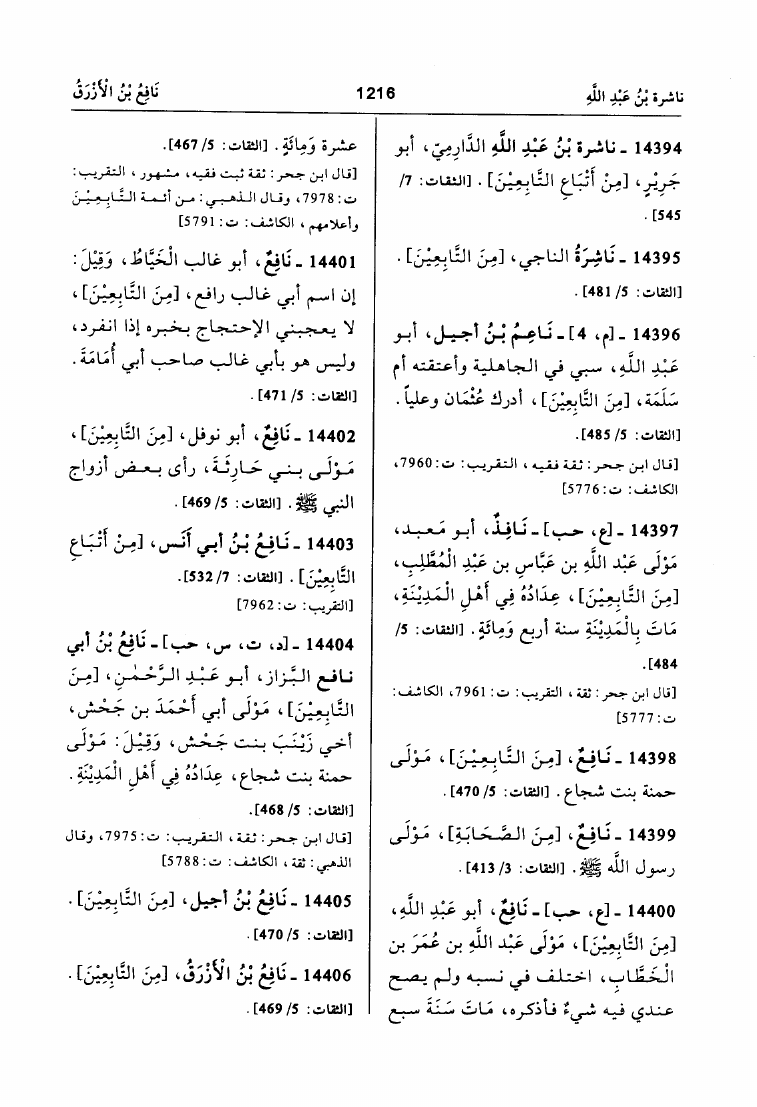 ناشرة بْنُ عَبْدِ اللَّهِ
1216
نَافِعُ بْنُ الْأَزْرَقُ
14394 ـ ناشرة بْنُ عَبْدِ اللَّهِ الدَّارِمِيّ، أبو
جَرِيْرٍ، [مِنْ أَتْبَاعِ التَّابِعِيْنَ]. [الثقات: 7/
545].
14395 ـ نَاشِرَةُ الناجي، [مِنَ التَّابِعِيْنَ].
[الثقات: 5/ 481].
14396 ـ [م، 4] ـ نَاعِمُ بْنُ أجيل، أبو
عَبْدِ اللَّه، سبي في الجاهلية وأعتقته أم
سَلَمَة، [مِنَ التَّابِعِيْنَ]، أدرك عُثْمَان وعلياً.
[الثقات: 5/ 485].
[قال ابن حجر: ثقة فقيه، التقريب: ت: 7960،
الكاشف: ت: 5776]
14397 ـ [ع، حب] ـ نَافِذٌ، أبو معبد،
مَوْلَى عَبْدِ اللَّهِ بن عَبَّاسِ بن عَبْدِ الْمُطَّلِبِ،
[مِنَ التَّابِعِيْنَ]، عِدَادُهُ فِي أَهْلِ الْمَدِيْنَةِ،
مَاتَ بِالْمَدِيْنَةِ سنة أربع وَمِائَةٍ. [الثقات: 5/
484].
[قال ابن حجر: ثقة، التقريب: ت: 7961، الكاشف:
ت: 5777]
14398 ـ نَافِعٌ، [مِنَ التَّابِعِيْنَ]، مَوْلَى
حمنة بنت شجاع. [الثقات: 5/ 470].
14399 ـ نَافِعٌ، [مِنَ الصَّحَابَةِ]، مَوْلَى
رسول اللَّه ﷺ. [الثقات: 3/ 413].
14400 ـ [ع، حب] ـ نَافِعٌ، أبو عَبْدِ اللَّه،
[مِنَ التَّابِعِيْنَ]، مَوْلَى عَبْدِ اللَّه بن عُمَرَ بن
الْخَطَّابِ، اختلف في نسبه ولم يصح
عندي فيه شيءٌ فأذكره، مَاتَ سَنَةَ سبع
عشرة وَمِائَةٍ. [الثقات: 5/ 467].
[قال ابن حجر: ثقة ثبت فقيه، مشهور، التقريب:
ت: 7978، وقال الذهبي: من أئمة التَّابِعِيْنَ
وأعلامهم، الكاشف: ت: 5791]
14401 ـ نَافِعٌ، أبو غالب الْخَيَّاطُ، وَقِيْلَ:
إن اسم أبي غالب رافع، [مِنَ التَّابِعِيْنَ]،
لا يعجبني الإحتجاج بخبره إذا انفرد،
وليس هو بأبي غالب صاحب أبي أُمَامَةَ.
[الثقات: 5/ 471].
14402 ـ نَافِعٌ، أبو نوفل، [مِنَ التَّابِعِيْنَ]،
مَوْلَى بني حَارِثَةَ، رأى بعض أزواج
النبي ﷺ. [الثقات: 5/ 469].
14403 ـ نَافِعُ بْنُ أبي أَنَس، [مِنْ أَتْبَاعِ
التَّابِعِيْنَ]. [الثقات: 7/ 532].
[التقريب: ت: 7962]
14404 ـ [د، ت، س، حب] ـ نَافِعُ بْنُ أبي
نافع البَّزاز، أبو عَبْدِ الرَّحْمٰنِ، [مِنَ
التَّابِعِيْنَ]، مَوْلَى أبي أَحْمَدَ بن جَحْش،
أخي زَيْنَبَ بنت جَحْش، وَقِيْلَ: مَوْلَى
حمنة بنت شجاع، عِدَادُهُ فِي أَهْلِ الْمَدِيْنَةِ.
[الثقات: 5/ 468].
[قال ابن حجر: ثقة، التقريب: ت: 7975، وقال
الذهبي: ثقة، الكاشف: ت: 5788]
14405 ـ نَافِعُ بْنُ أجيل، [مِنَ التَّابِعِيْنَ].
[الثقات: 5/ 470].
14406 ـ نَافِعُ بْنُ الْأَزْرَقُ، [مِنَ التَّابِعِيْنَ].
[الثقات: 5/ 469].